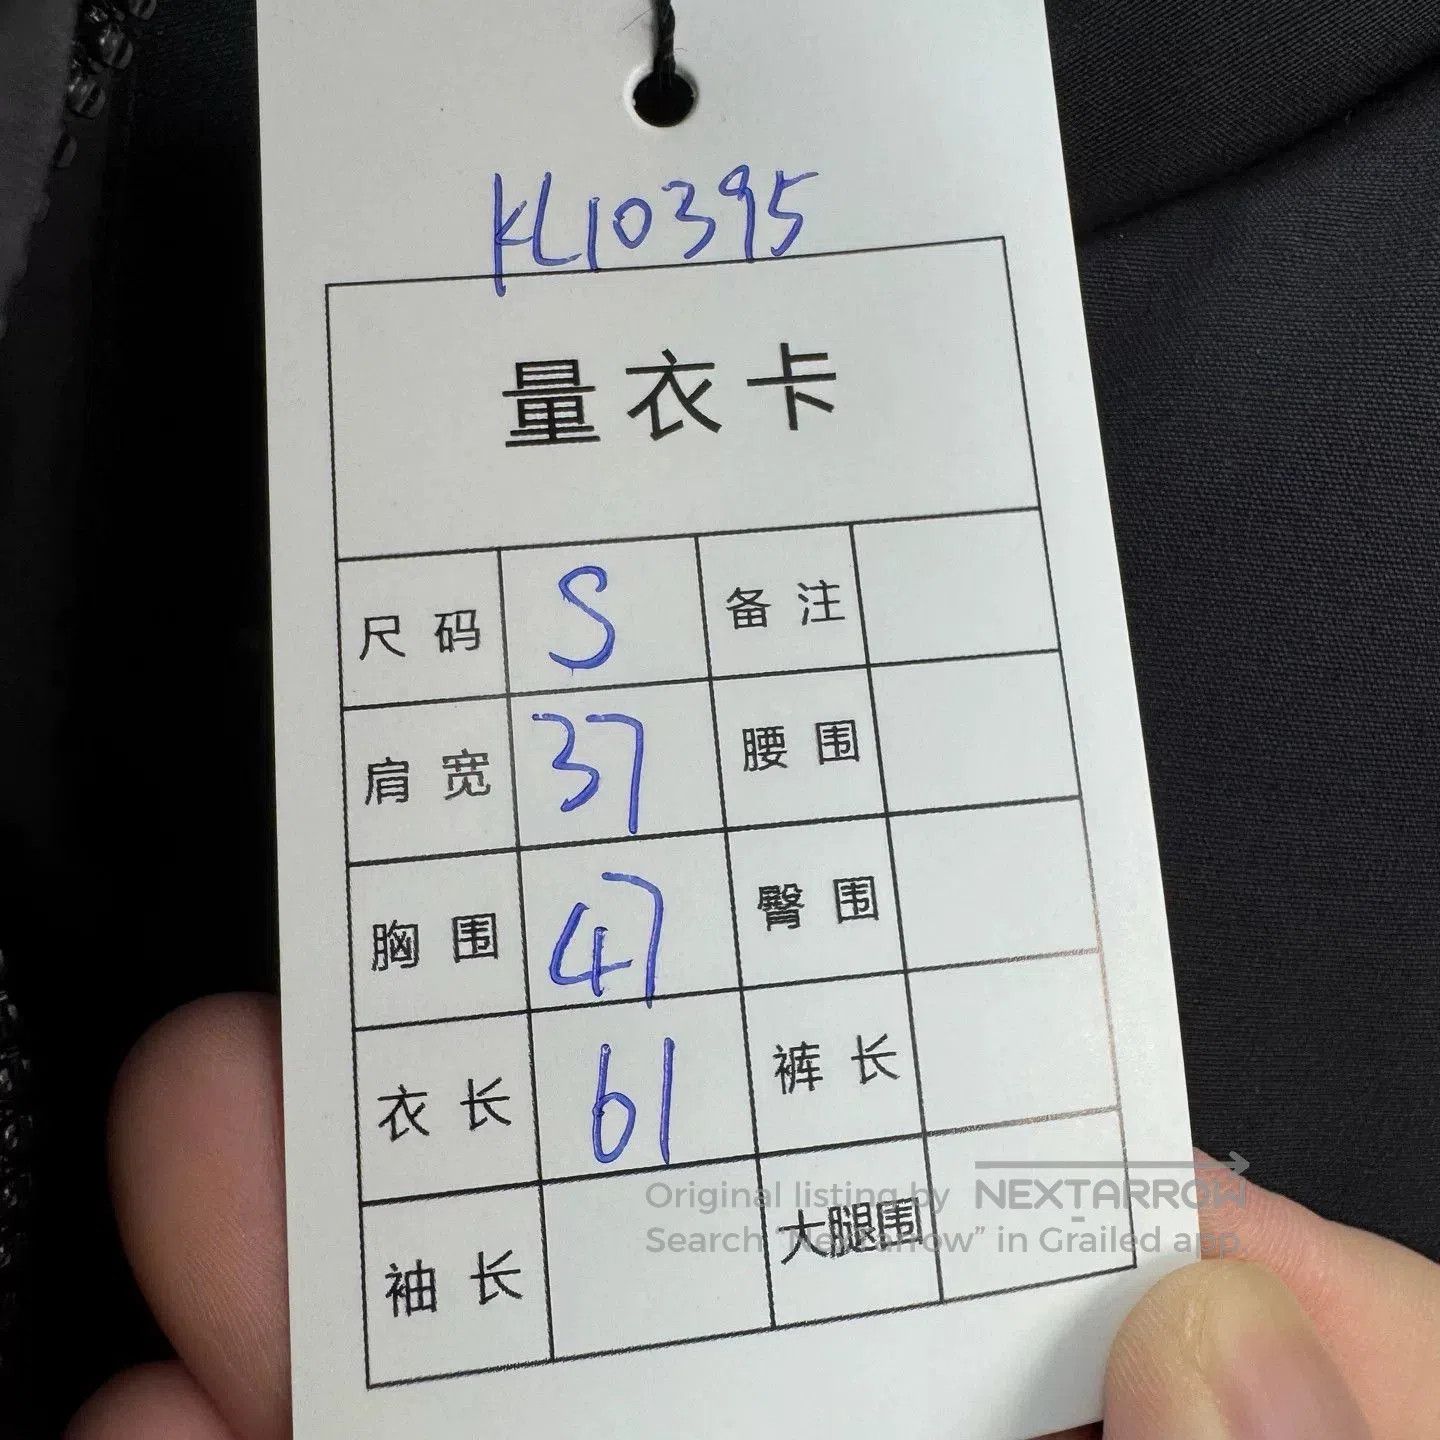 KL10395
量衣卡
尺码 S 备注
肩宽 37 腰围
胸围 47 臀围
衣长 61 裤长
袖长 大腿围
Original listing by NEXTARROW
Search "NextArrow" in Grailed app